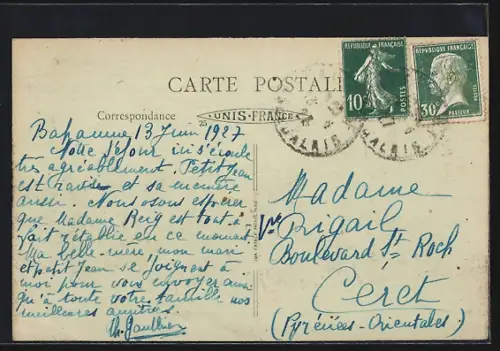 CARTE POSTALE
Correspondance
UNIS-FRANCE
RÉPUBLIQUE FRANÇAISE
10c
POSTES
RÉPUBLIQUE FRANÇAISE
30c
POSTES
PASTEUR
13 Juin 1927
Notre séjour ici s'écoule
très agréablement. Petit Jean
est ravi et sa
aussi. Nous osons espérer
que Madame Reig est tout à
fait rétablie en ce moment
Ma belle-mère, mon mari
et petit Jean se joignent à
moi pour vous envoyer ainsi
qu'à toute votre famille nos
meilleures amitiés
Th. Gauthier
Madame
Vve Rigail
Boulevard St Roch
Céret
(Pyrénées-Orientales)